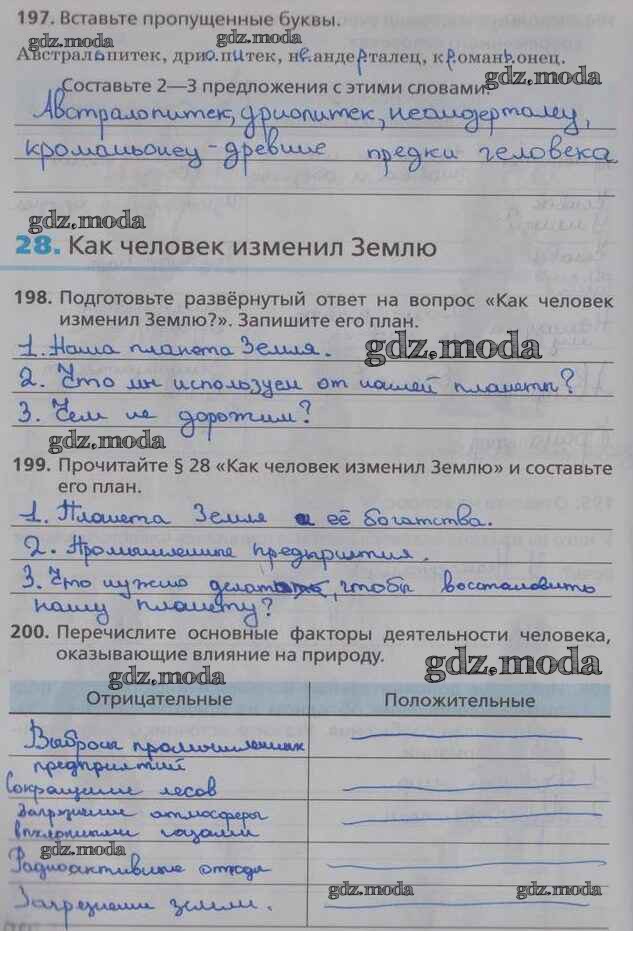 197. Вставьте пропущенные буквы.
Австральпитек, дриопитек, неандерталец, кроманьонец.
Составьте 2—3 предложения с этими словами.
Австралопитек, дриопитек, неандерталец,
кроманьонец - древние предки человека
gdz.moda
28. Как человек изменил Землю
198. Подготовьте развёрнутый ответ на вопрос «Как человек
изменил Землю?». Запишите его план.
1. Наша планета Земля. gdz.moda
2. Что мы используем от нашей планеты?
3. Чем не дорожим?
gdz.moda
199. Прочитайте § 28 «Как человек изменил Землю» и составьте
его план.
1. Планета Земля и её богатства.
2. Промышленные предприятия.
3. Что нужно делать, чтобы восстановить
нашу планету?
200. Перечислите основные факторы деятельности человека,
оказывающие влияние на природу.
gdz.moda gdz.moda
Отрицательные Положительные
Выбросы промышленных
предприятий
Сокращение лесов
Загрязнение атмосферы
выхлопными газами
gdz.moda
Радиоактивные отходы
gdz.moda gdz.moda
Загрязнение земли.